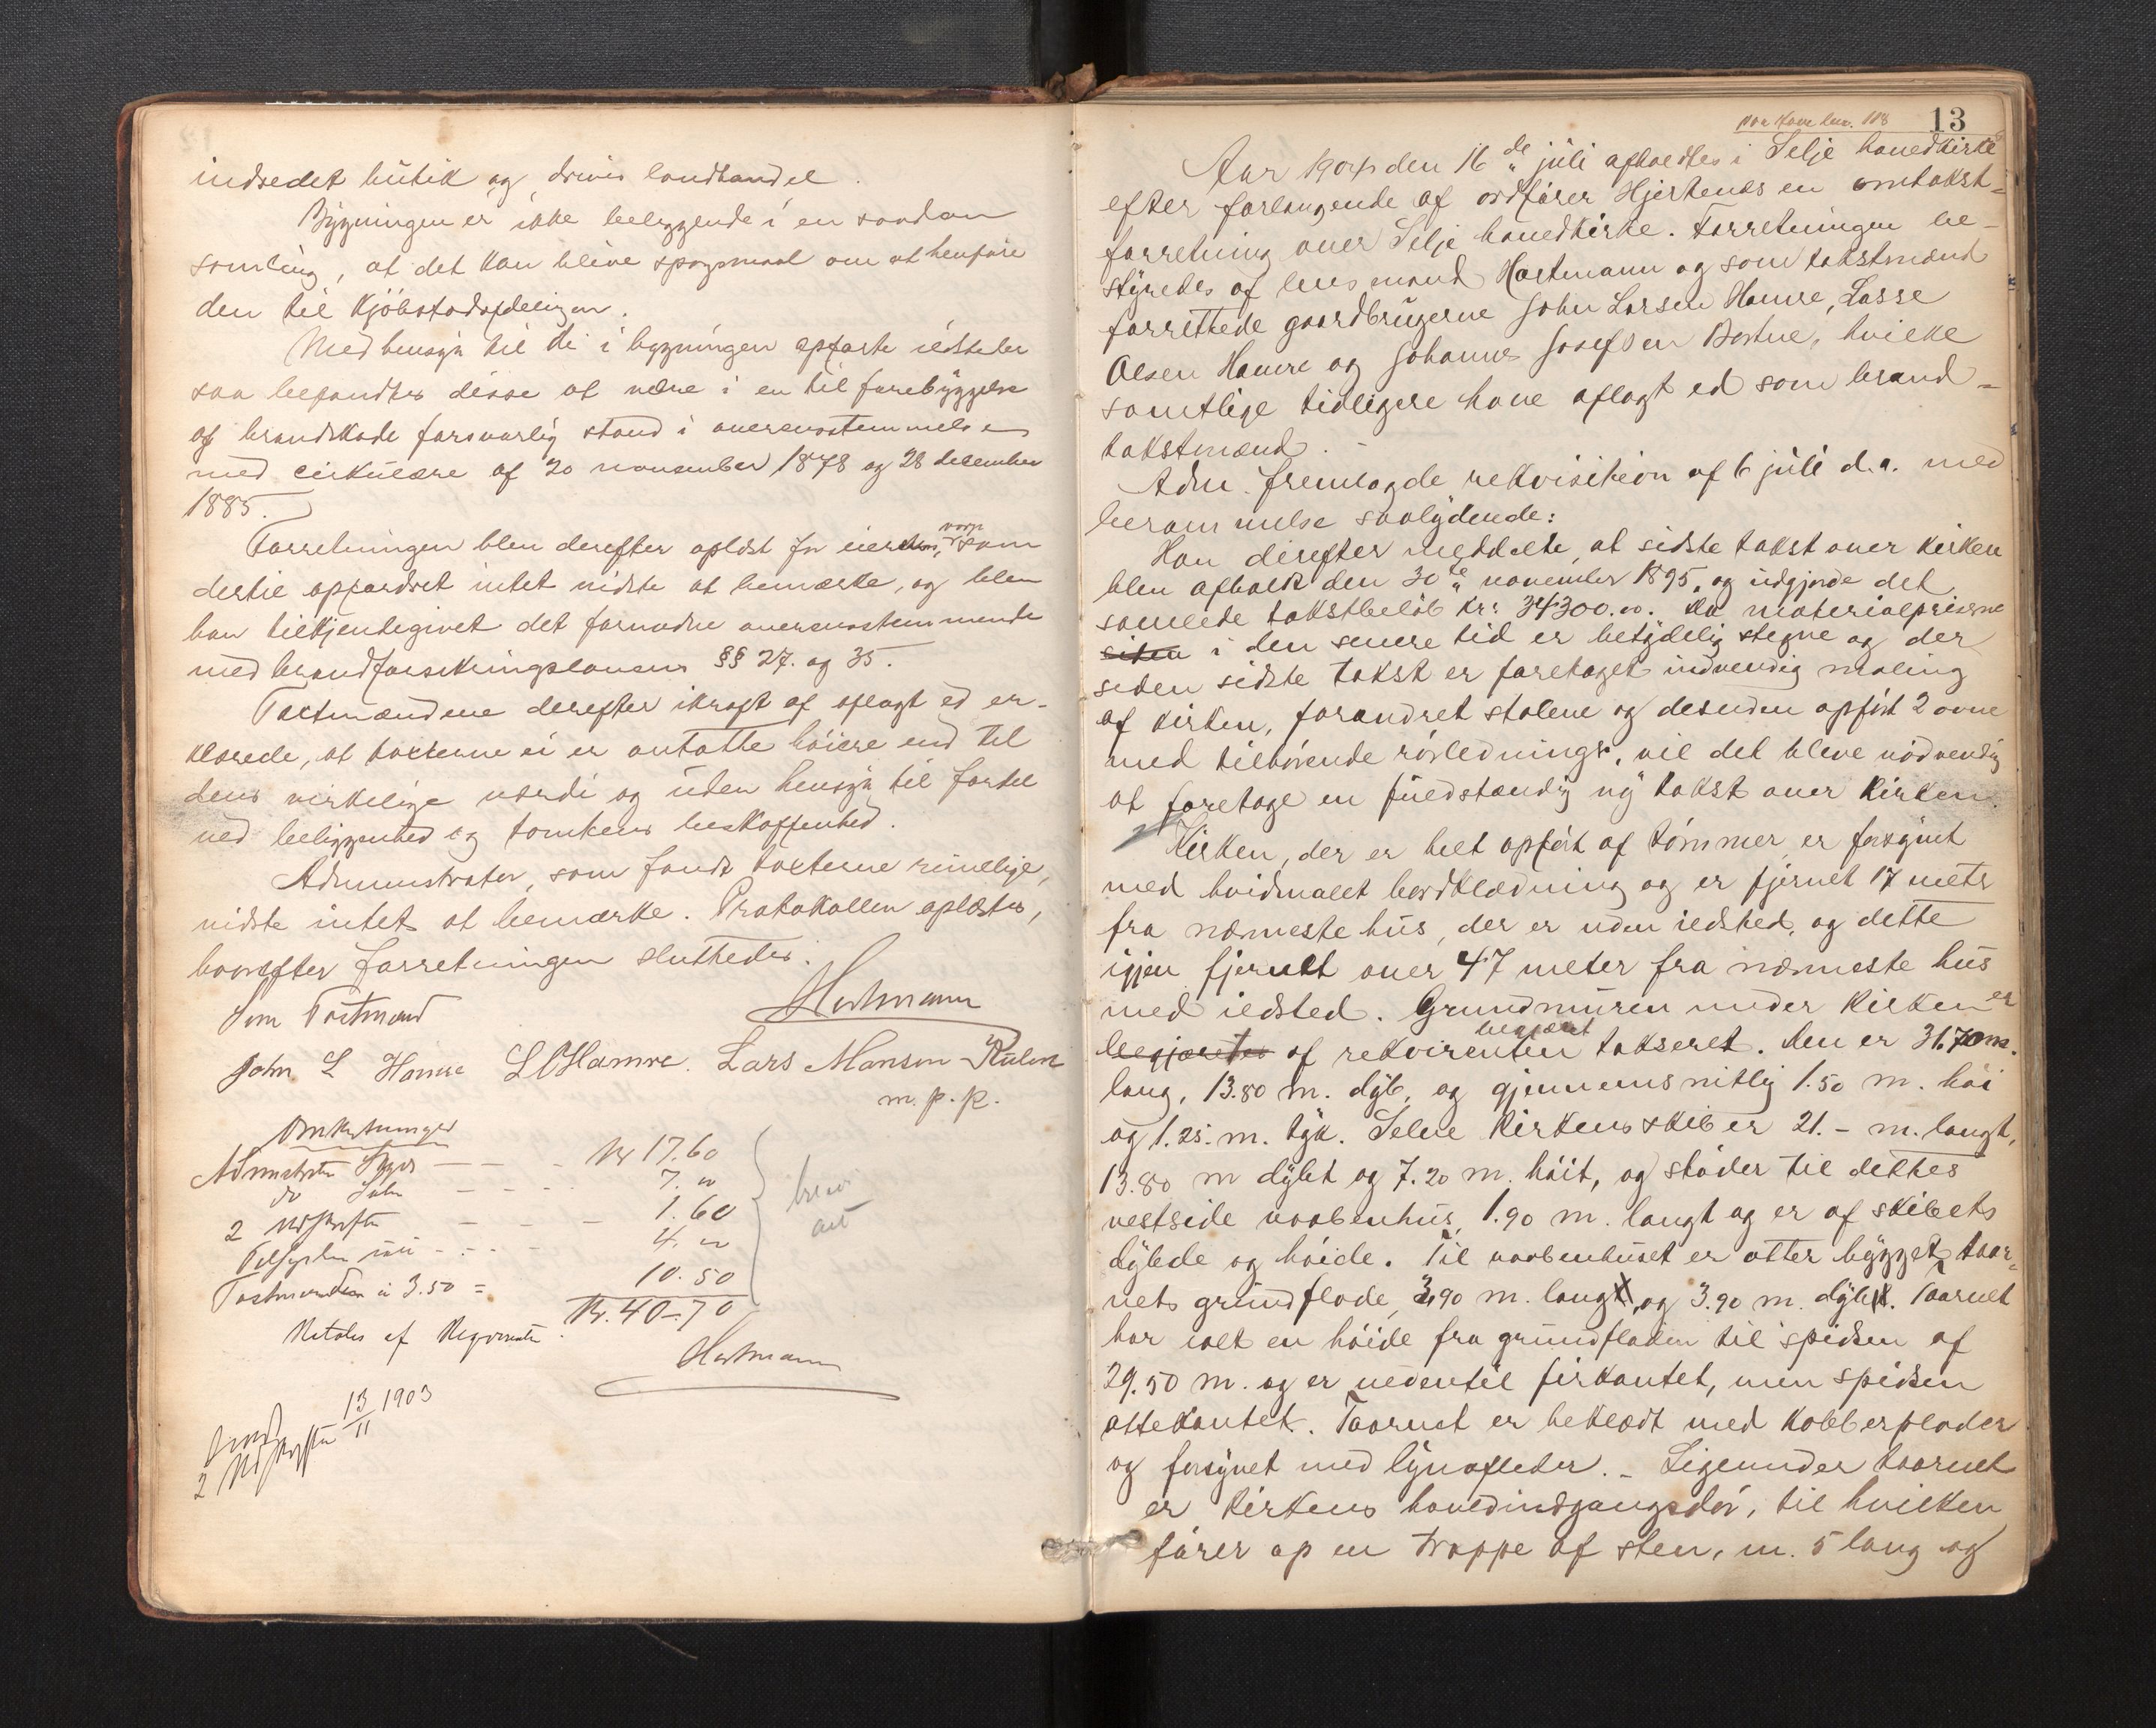 indredet butik og drives landhandel.
Bygningen er ikke beliggende i en saadan
samling, at det kan blive spørgsmaal om at henføre
den til Kjøbstadafdelingen.
Med hensyn til de i bygningen opførte ildsteder
saa befandtes disse at være i en til forebyggelse
af brandskade forsvarlig stand i overensstemmelse
med cirkulære af 20 november 1878 og 28 december
1885.
Forretningen blev derefter oplæst for eieren, som
dertil opfordret intet vidste at bemærke, og blev
han tilkjendegivet det fornødne overensstemmende
med brandforsikringslovens §§ 27. og 35.
Taxtmændene derefter ikraft af aflagt ed er-
klærede, at taxterne ei er ansatte høiere end til
dens virkelige værdi og uden hensyn til fordel
ved beliggenhed og tomtens beskaffenhed.
Administrator, som fandt taxterne rimelige,
vidste intet at bemærke. Protokollen oplæstes,
hvorefter forretningen sluttedes.
Hartmann
Som Taxtmænd
John L Hamre L O Hamre. Lars Monsen
m. p. p.
Omkostninger
Administrators Skyds — — - Kr 17.60
do Salær — - - - 7. "
2 Udskrifter — — - 1.60
4. "
Taxtmændene à 3.50 = 10.50
Kr. 40-70
Betales af Rekvirenten
Hartmann
2 Udskrifter 13/11 1903
13
Aar 1904 den 16de juli afholdtes i Selje hovedkirke
efter forlangende af ordfører Hjertenes en omtakst-
forretning over Selje hovedkirke. Forretningen be-
styredes af lensmand Hartmann og som takstmænd
forrettede gaardbrugerne John Larsen Hamre, Lasse
Olsen Hamre og Johannes Josefsen Bortne, hvilke
samtlige tidligere have aflagt ed som brand-
takstmænd.
Adm. fremlagde rekvisition af 6 juli d.a. med
berammelse saalydende:
Han derefter meddelte, at sidste takst over kirken
blev afholdt den 30te november 1895, og udgjorde det
samlede takstbeløb kr: 34300.00. Da materialpriserne
siden i den senere tid er betydelig stegne og der
siden sidste takst er foretaget indvendig maling
af kirken, forandret stolene og desuden opført 2 ovne
med tilhørende rørledninger, vil det blive nødvendig
at foretage en fuldstændig ny takst over kirken.
Kirken, der er helt opført af tømmer, er forsynet
med hvidmalet bordklædning og er fjernet 17 meter
fra nærmeste hus, der er uden ildsted, og dette
igjen fjernet over 47 meter fra nærmeste hus
med ildsted. Grundmuren under kirken er
begjæretes af rekvirenten begjæret takseret. Den er 31.70 m.
lang, 13.80 m. dyb, og gjennemsnitlig 1.50 m. høi
og 1.25. m. tyk. Selve kirkens skib er 21.- m. langt,
13.80 m dybt og 7.20 m. høit, og støder til dettes
vestside vaabenhus, 1.90 m. langt og er af skibets
dybde og høide. Til vaabenhuset er atter bygget taar-
nets grundflade, 3.90 m. lang, og 3.90 m. dyb. Taarnet
har ialt en høide fra grundfladen til spidsen af
29.50 m. og er nedentil firkantet, men spidsen
ottekantet. Taarnet er beklædt med kobberplader
og forsynet med lynafleder. - Ligeunder taarnet
er kirkens hovedindgangsdør, til hvilken
fører op en trappe af sten, m. 5 lang og